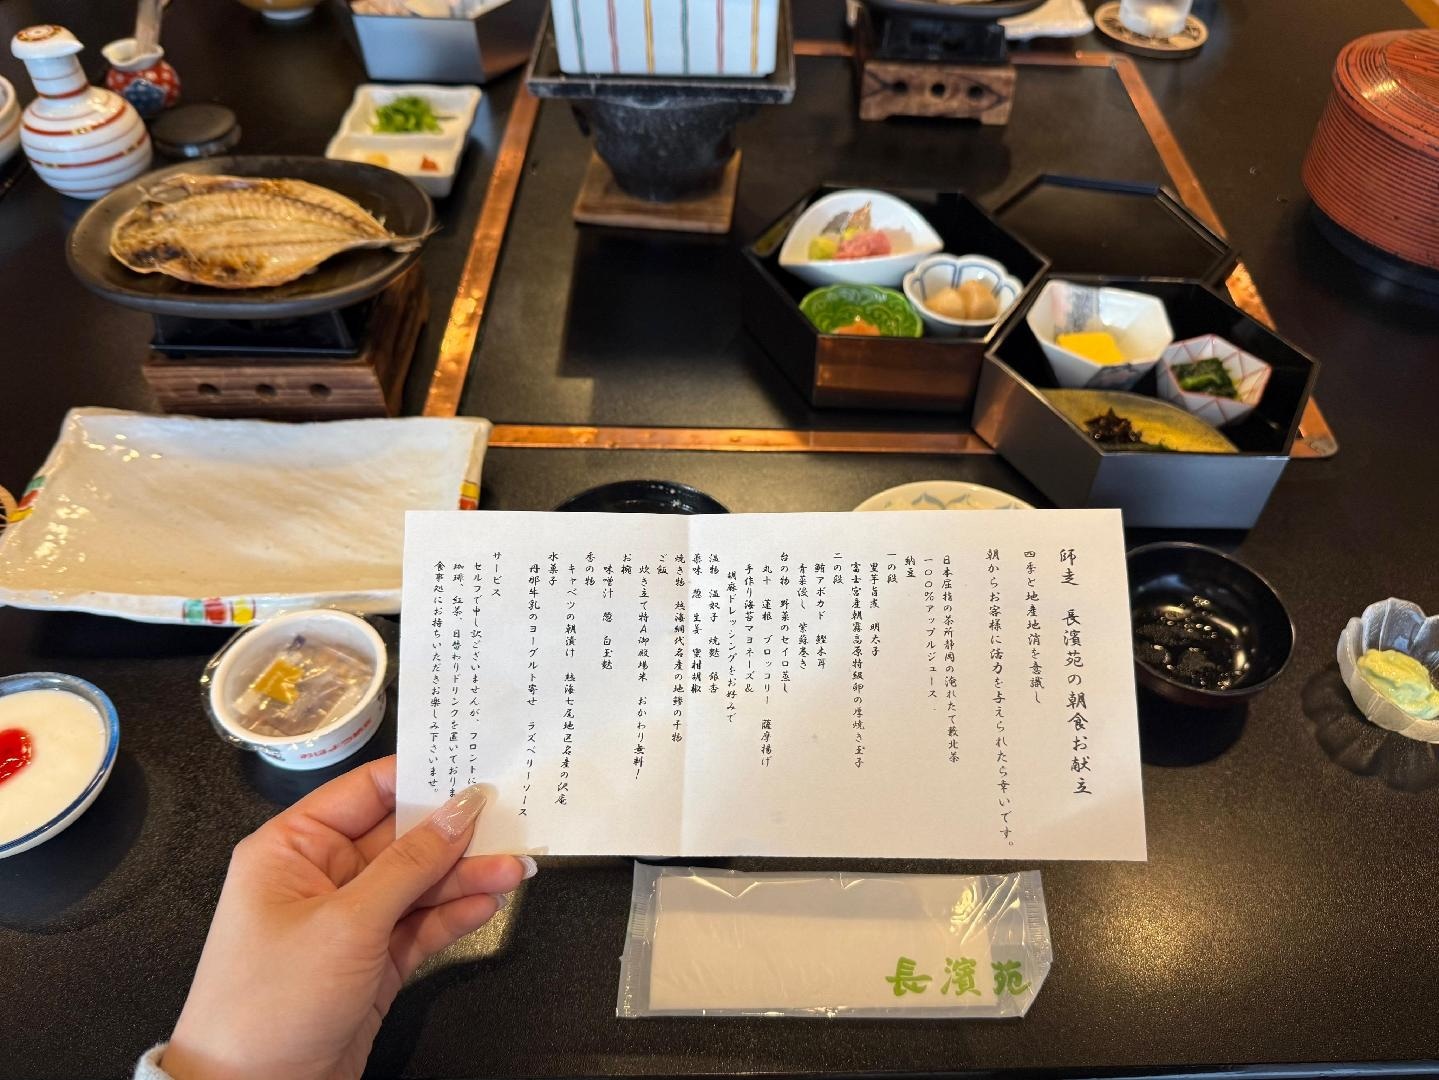 師走　長濱苑の朝食お献立
四季と地産地消を意識し
朝からお客様に活力を与えられたら幸いです。
日本屈指の茶所静岡の淹れたて薮北茶
一〇〇%アップルジュース
納豆
一の段
里芋旨煮　明太子
富士宮産朝霧高原特級卵の厚焼き玉子
二の段
鮪アボカド　鰹木耳
青菜浸し　紫蘇巻き
台の物　野菜のセイロ蒸し
丸十　蓮根　ブロッコリー　薩摩揚げ
手作り海苔マヨネーズ&
胡麻ドレッシングをお好みで
温物　温奴子　焼麩　銀杏
薬味　葱　生姜　蜜柑胡椒
焼き物　熱海網代名産の地鯵の干物
ご飯
炊き立て特A御殿場米　おかわり無料！
お椀
味噌汁　葱　白玉麩
香の物
キャベツの朝漬け　熱海七尾地区名産の沢庵
水菓子
丹那牛乳のヨーグルト寄せ　ラズベリーソース
サービス
セルフで申し訳ございませんが、フロントに
珈琲、紅茶、日替わりドリンクを置いておりま
食事処にお持ちいただきお楽しみ下さいませ。
長濱苑